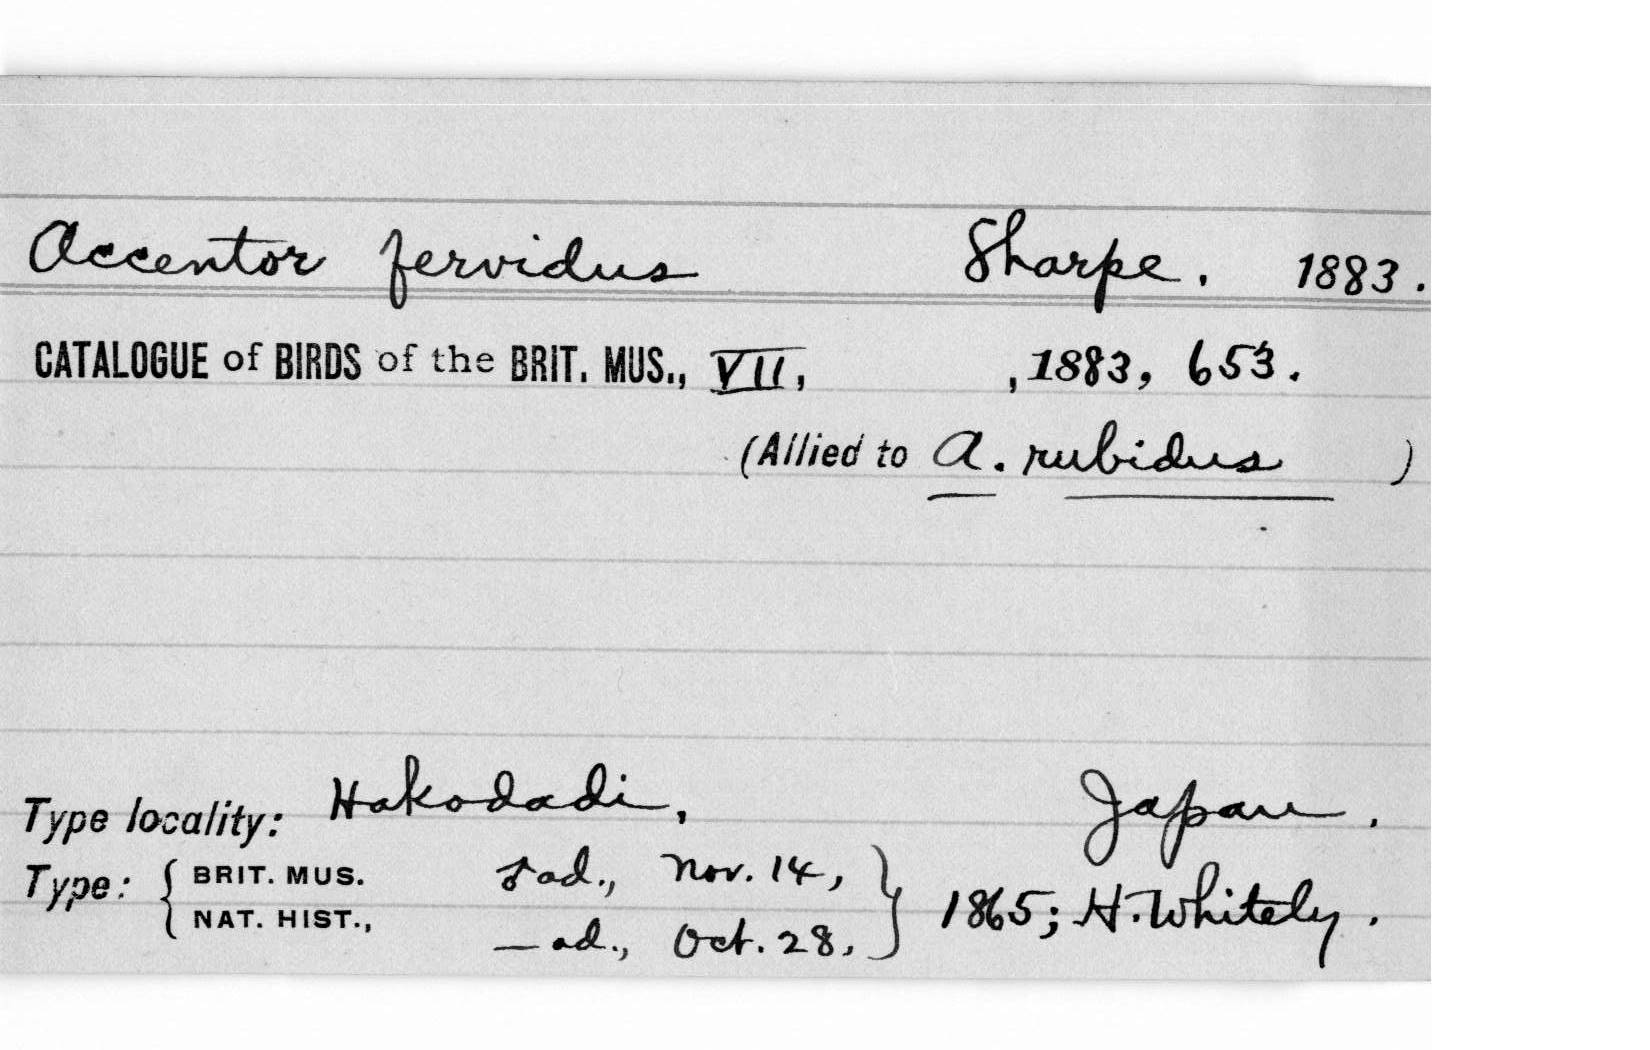 Accentor fervidus Sharpe. 1883.
CATALOGUE of BIRDS of the BRIT. MUS., VII, , 1883, 653.
(Allied to A. rubidus )
Type locality: Hakodadi, Japan.
Type: { BRIT. MUS. ♂ ad., Nov. 14, }
NAT. HIST., — ad., Oct. 28, } 1865; H. Whitely.